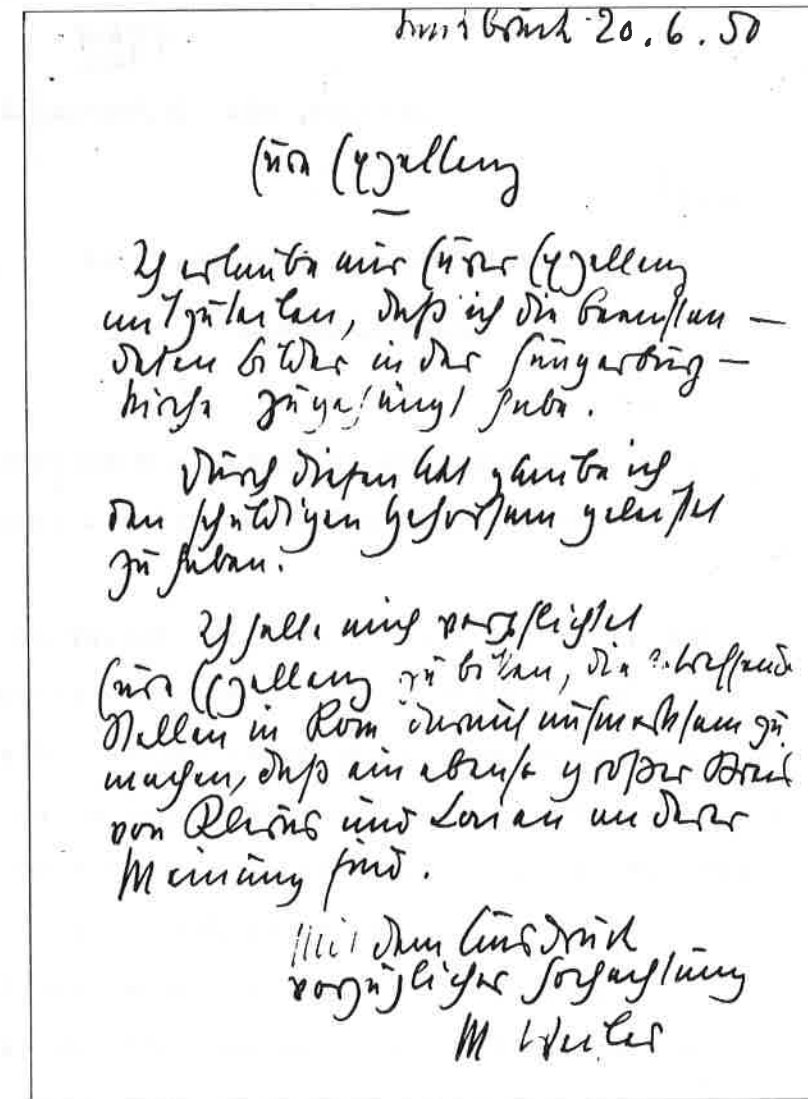 Innsbruck 20.6.50
Eure Exzellenz
Ich erlaube mir Eurer Exzellenz
mitzuteilen, daß ich die beanstan-
deten Bilder in der Hungerburg-
kirche zugehängt habe.
Durch diesen Akt glaube ich
den schuldigen Gehorsam geleistet
zu haben.
Ich halte mich verpflichtet
Eure Exzellenz zu bitten, die betreffende
Stellen in Rom darauf aufmerksam zu
machen, daß ein ebenso großer Kreis
von Klerus und Laien anderer
Meinung sind.
Mit dem Ausdruck
vorzüglicher Hochachtung
M Weiler